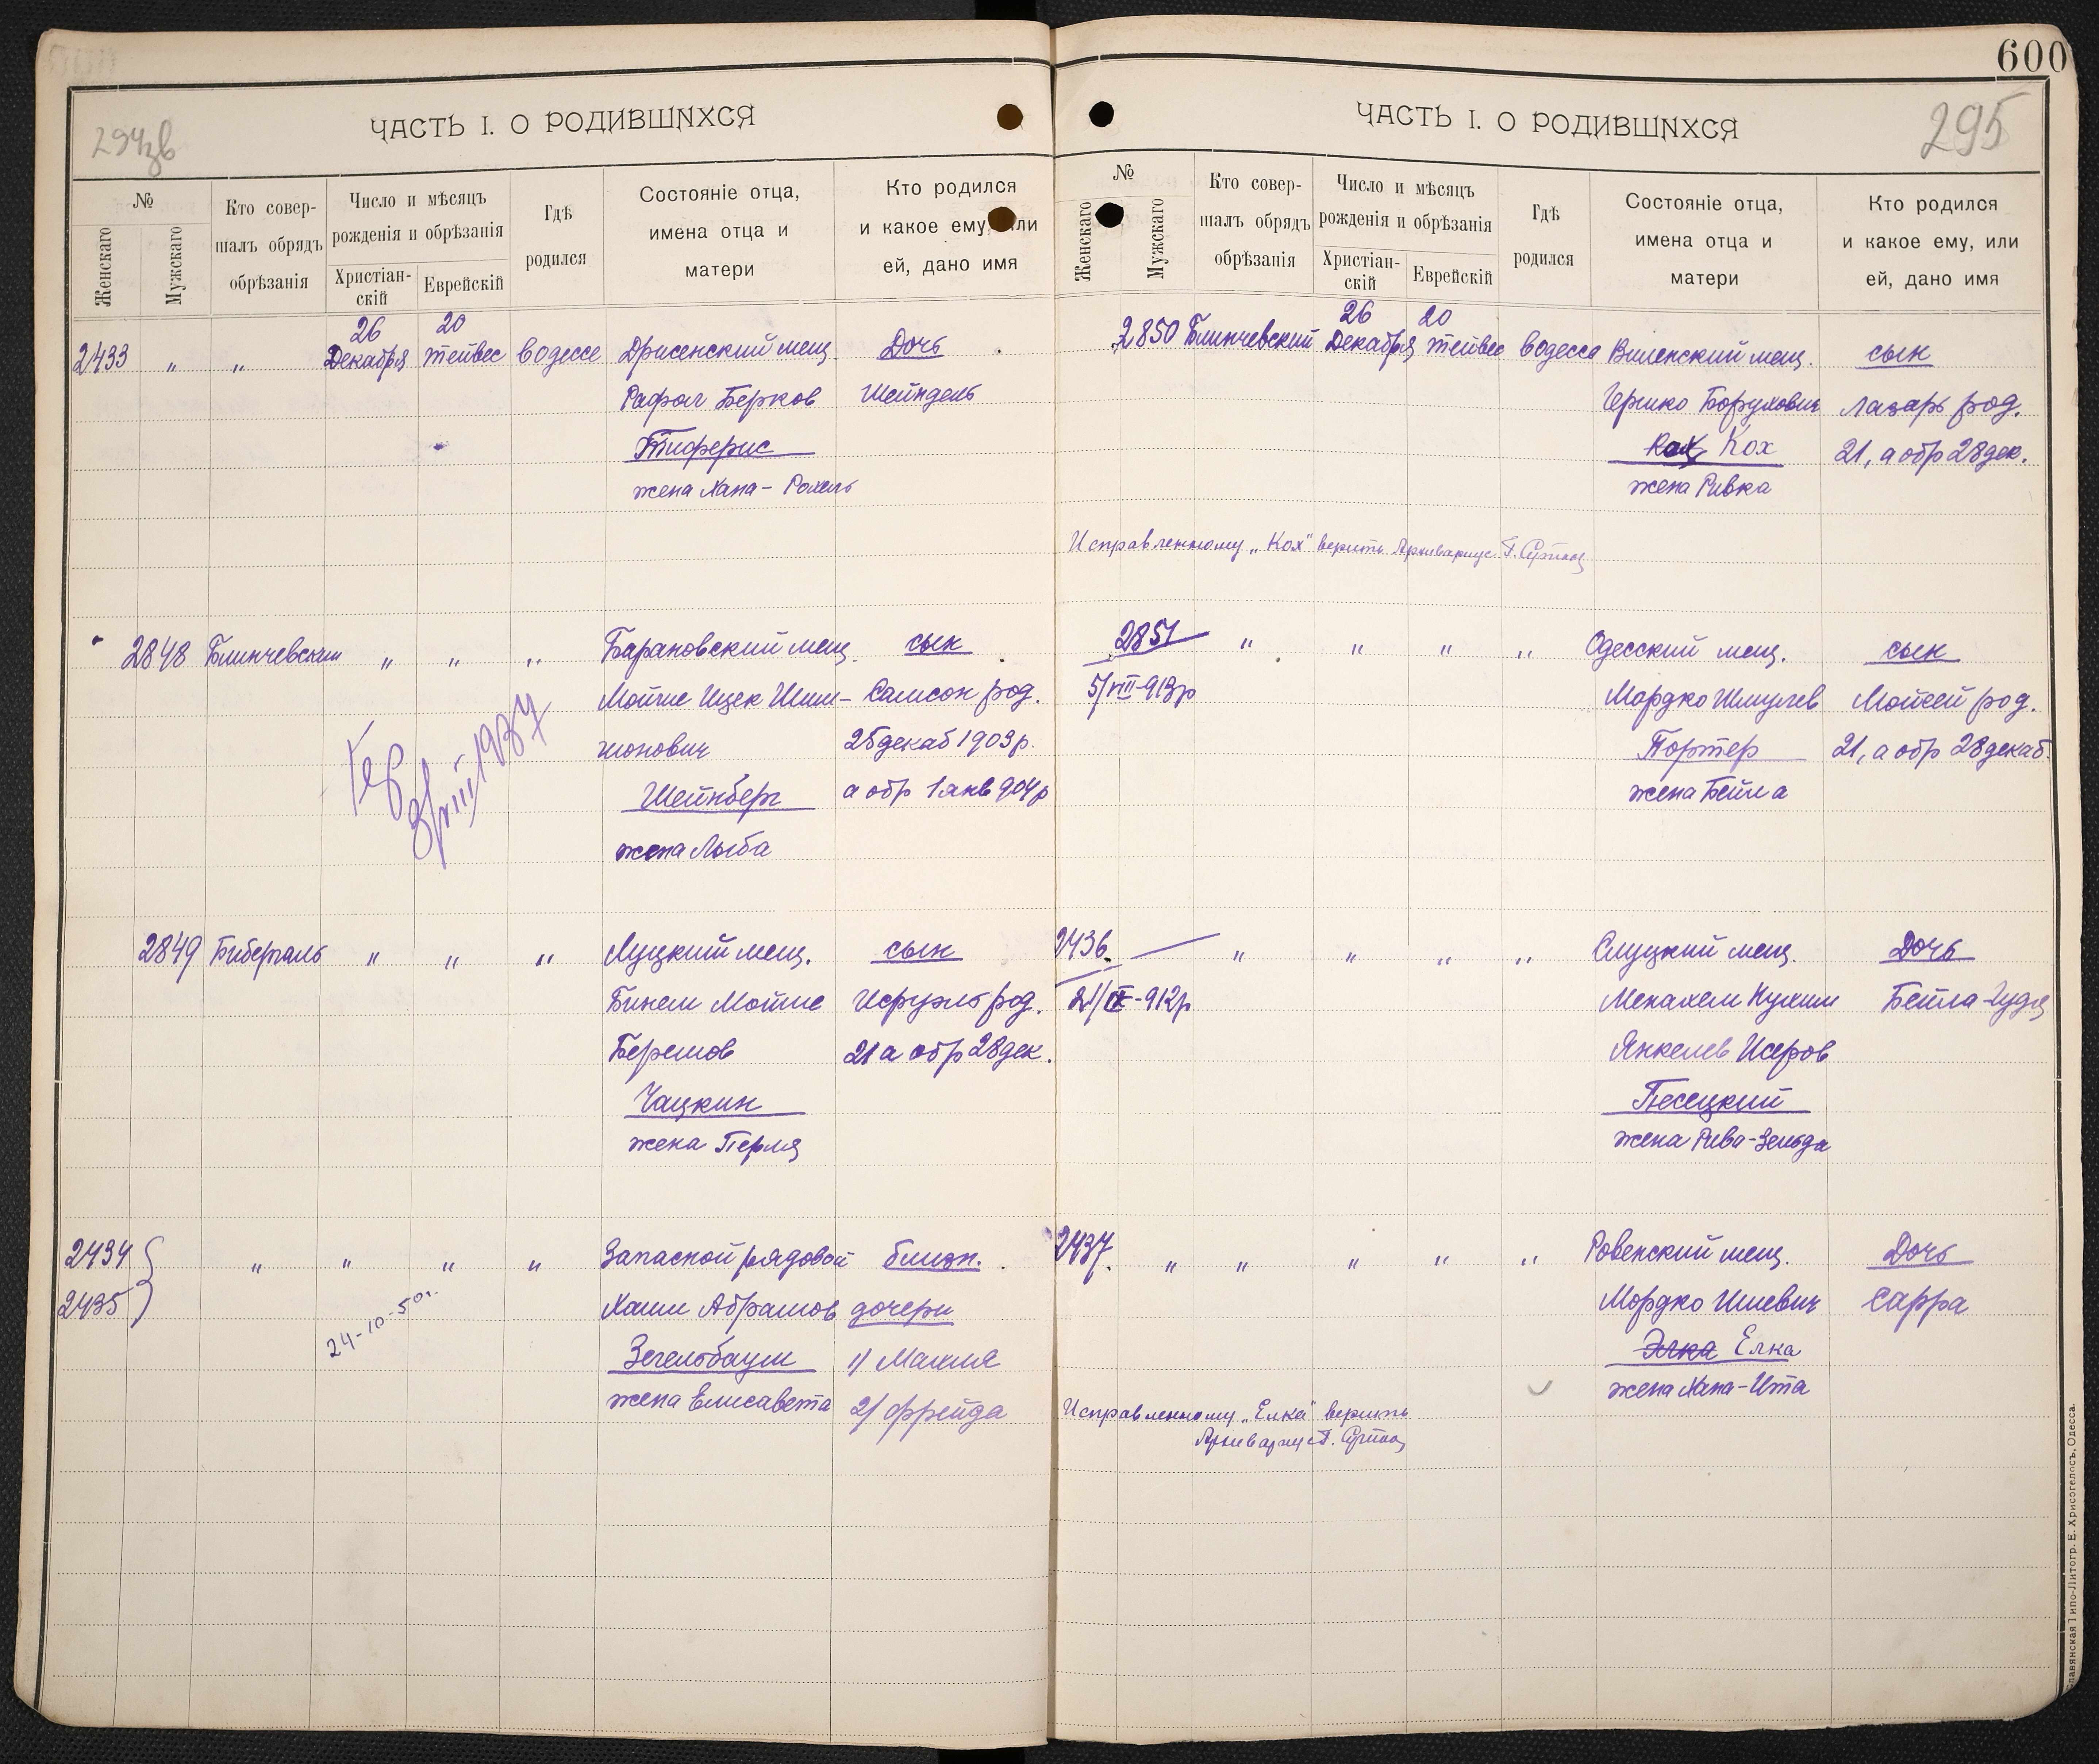 294зв
ЧАСТЬ I. О РОДИВШИХСЯ
№
Женскаго
Мужскаго
Кто совер-
шалъ обрядъ
обрѣзанія
Число и мѣсяцъ
рожденія и обрѣзанія
Христіан-
скій
Еврейскій
Гдѣ
родился
Состояніе отца,
имена отца и
матери
Кто родился
и какое ему, или
ей, дано имя
26 20
2433 " " Декабря тейвес водессе Дрисенский мещ Дочь
Рафал Берков Шейндель
Тиферис
жена Хана-Рохель
2848 Блинчевский " " " Барановский мещ. сын
Мойше Ицек Шим- Самсон род.
шонович 25 декаб 1903 р.
Шейнберг а обр 1 янв 904 р
жена Либа
3/VIII 1937
2849 Биберталь " " " Луцкий мещ. сын
Бинем Мойше Исруэль род.
Беремов 21 а обр 28 дек.
Чацкин
жена Перля
2434 " " " " Запасной рядовой близн.
2435 Хаим Абрамов дочери
24-10-50г.
Зегельбаум 1/ Махля
жена Елисавета 2/ фрейда
600
295
ЧАСТЬ I. О РОДИВШИХСЯ
№
Женскаго
Мужскаго
Кто совер-
шалъ обрядъ
обрѣзанія
Число и мѣсяцъ
рожденія и обрѣзанія
Христіан-
скій
Еврейскій
Гдѣ
родился
Состояніе отца,
имена отца и
матери
Кто родился
и какое ему, или
ей, дано имя
26 20
2850 Блинчевский Декабря тейвес водессе Виленский мещ. сын
Гершко Борухович Лазарь род.
Кох 21, а обр 28 дек.
жена Ривка
Исправленному „Кох" верить Архивариус Г.
2851 " " " " Одесский мещ. сын
5/VIII-913р Мордко Шмулев Мойсей род.
Портер 21, а обр 28 декаб.
жена Бейла
2436. — " " " " Слуцкий мещ. Дочь
21/IX-912р Менахем Нухим Бейла-Гудя
Янкелев Исеров
Песецкий
жена Рива-Зельда
2437. " " " " " Ровенский мещ. Дочь
Мордко Ишевич сарра
Элка Елка
жена Хана-Ита
Исправленному „Елка" верить
Архивариус Г.
Славянская Типо-Литогр. Е. Хрисогелосъ, Одесса.